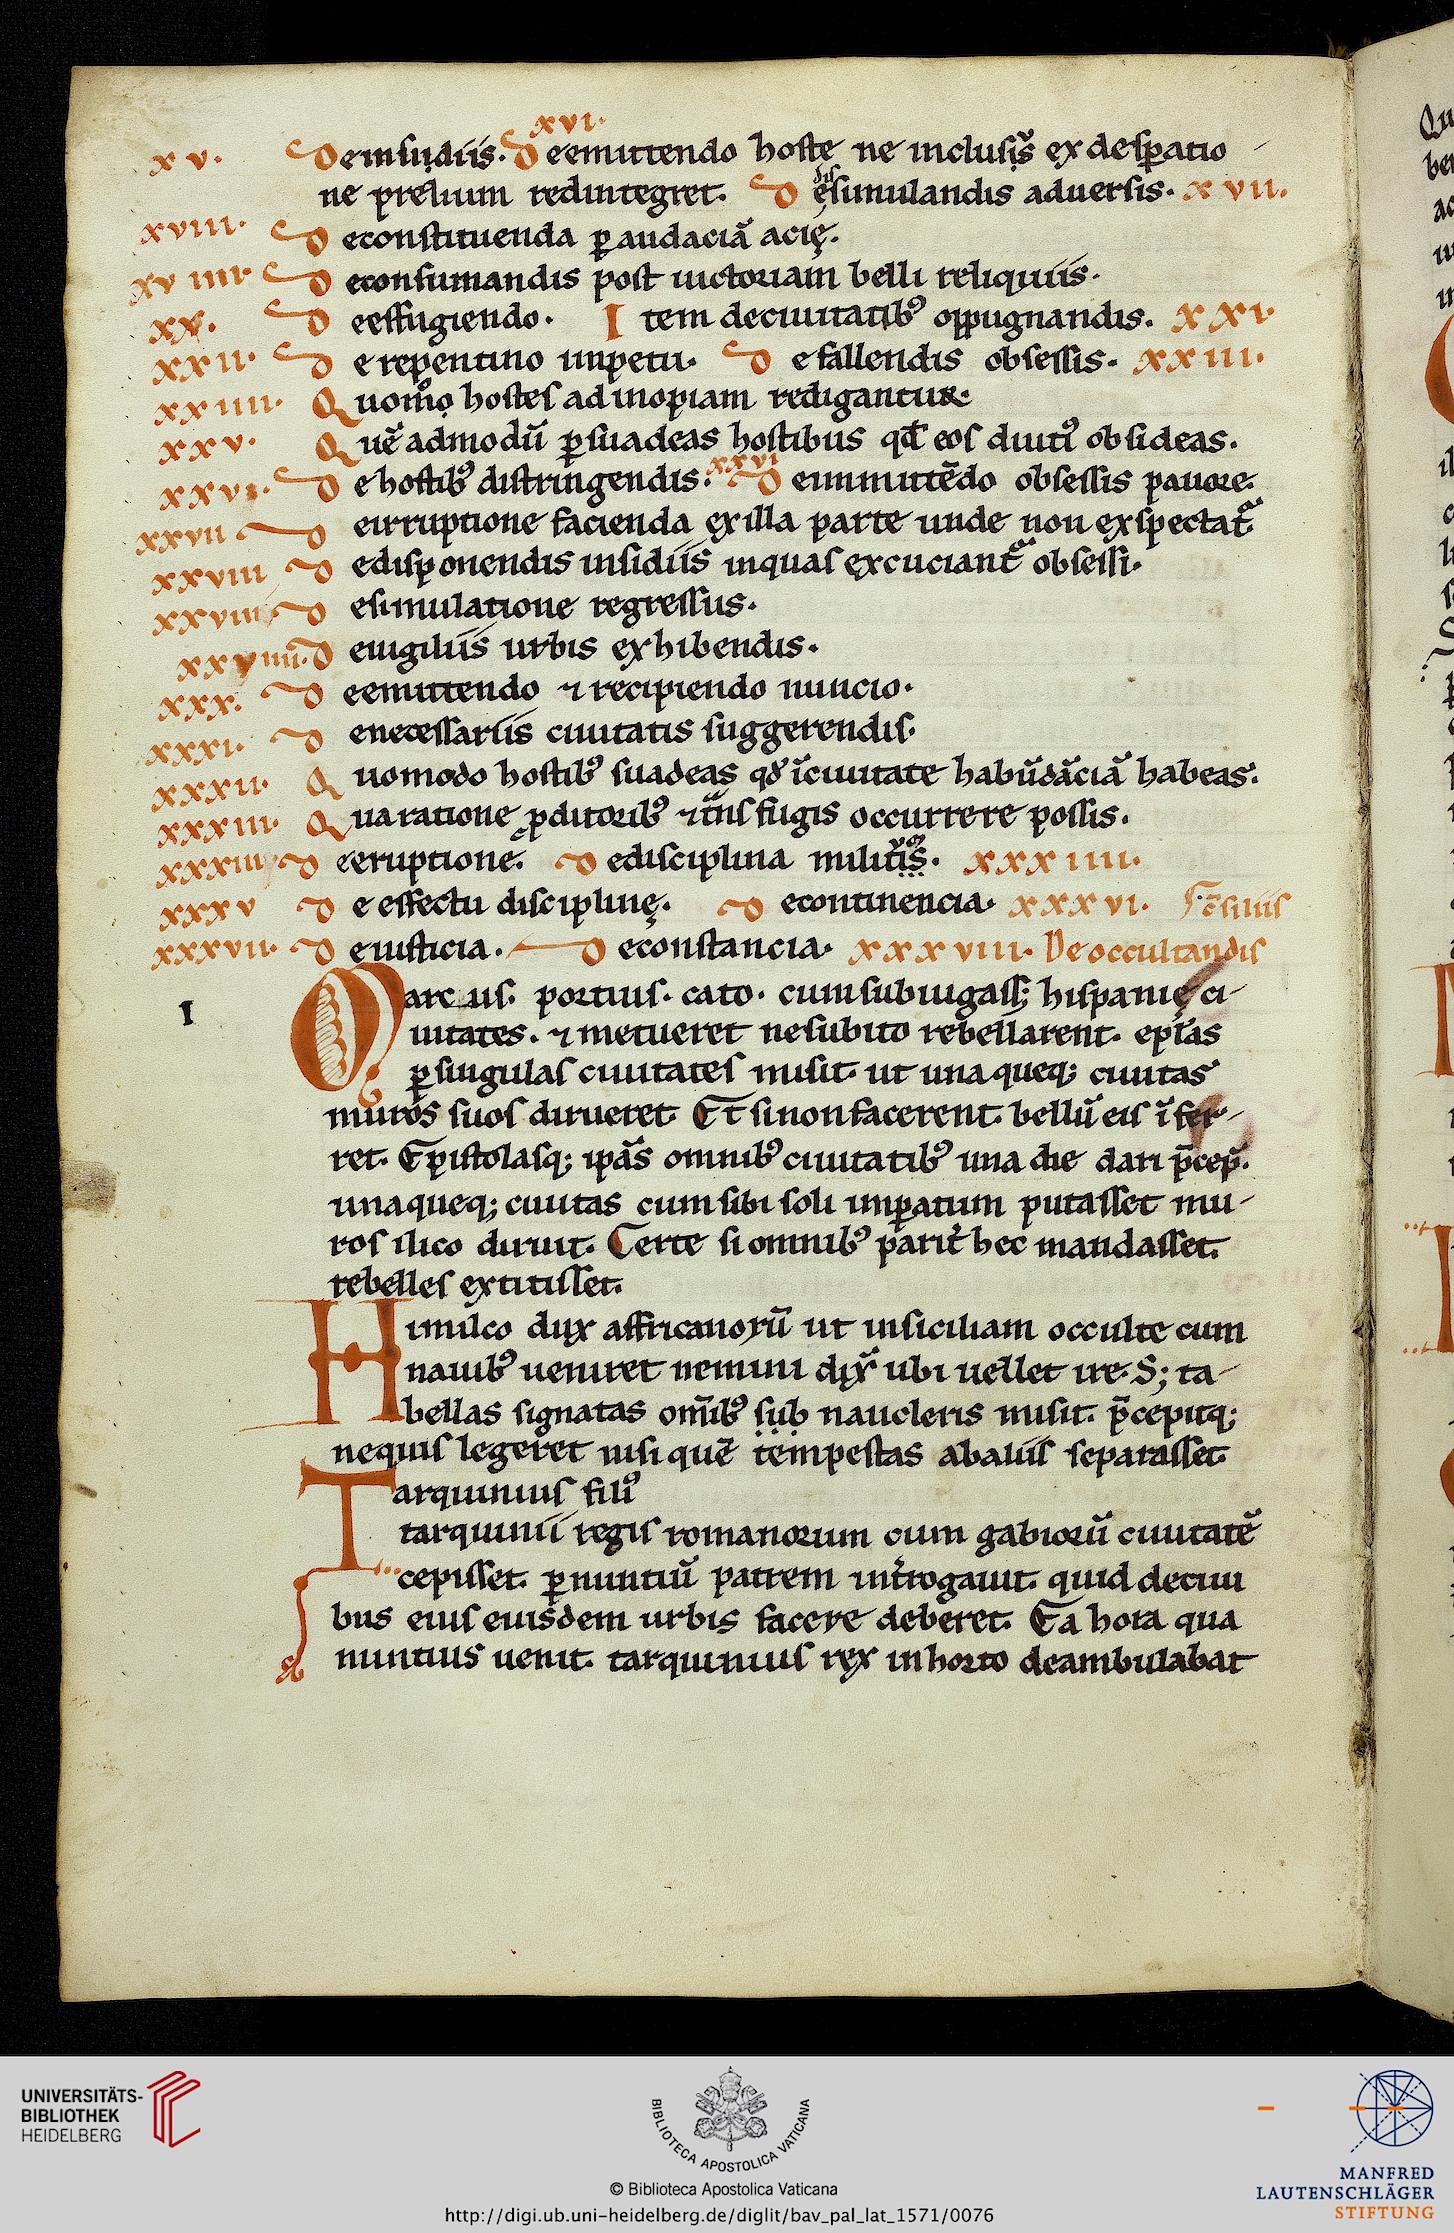 xvi.
xv. De insidiis. De emittendo hoste ne inclusis̄ ex desꝑatio-
ne prelium redintegret. De dissimulandis aduersis. xvii.
xviii. De constituenda ꝑ audaciā acię.
xviiii. De consumandis post uictoriam belli reliquiis.
xx. De effugiendo. Item de ciuitatibꝰ oppugnandis. xxi.
xxii. De repentino impetu. De fallendis obsessis. xxiii.
xxiiii. Quom̊o hostes ad inopiam redigantur.
xxv. Quē admodū ꝑsuadeas hostibus qđ eos diutiꝰ obsideas.
xxvi. De hostibꝰ distringendis. xxvi De inmittēdo obsessis pauore.
xxvii De irruptione facienda ex illa parte unde non exspectat᷑
xxviii De disponendis insidiis in quas excuciant᷑ obsessi.
xxviiii De simulatione regressus.
xxviiii. De uigiliis urbis exhibendis.
xxx. De emittendo ⁊ recipiendo nuncio.
xxxi. De necessariis ciuitatis suggerendis.
xxxii. Quomodo hostibꝰ suadeas qđ ī ciuitate habūdāciā habeas.
xxxiii. Qua ratione ꝓditoribꝰ ⁊ t̄nsfugis occurrere possis.
xxxiiii De eruptione. De disciplina militis. xxxiiii.
xxxv De effectu disciplinę. De continencia. xxxvi.
xxxvii. De iusticia. De constancia. xxxviii. De occultandis
I Marcus. portius. cato. cum subiugass; hispanię ci-
uitates. ⁊ metueret ne subito rebellarent. ep̄las
ꝑ singulas ciuitates misit. ut una queq; ciuitas
muros suos dirueret. Et si non facerent. bellū eis ī fer-
ret. Epistolasq; ipās omnibꝰ ciuitatibꝰ una die dari p̄cep̄.
unaqueq; ciuitas cum sibi soli imꝑatum putasset mu-
ros ilico diruit. Certe si omnibꝰ parit̄ hec mandasset.
rebelles extitisset.
Himilco dux affricanorū ut in siciliam occulte cum
nauibꝰ ueniret nemini dix̄ ubi uellet ire. S; ta-
bellas signatas om̄ibꝰ sub naucleris misit. p̄cepitq;
nequis legeret nisi quē tempestas ab aliis separasset.
Tarquinius filiꝰ
tarquinii regis romanorum cum gabiorū ciuitatē
cepisset. ꝑ nuntiū patrem int̄rogauit. quid de ciui
bus eius euisdem urbis facere deberet. Ea hora qua
nuntius uenit. tarquinius rex in horto deambulabat
UNIVERSITÄTS-
BIBLIOTHEK
HEIDELBERG
BIBLIOTECA APOSTOLICA VATICANA
© Biblioteca Apostolica Vaticana
http://digi.ub.uni-heidelberg.de/diglit/bav_pal_lat_1571/0076
MANFRED
LAUTENSCHLÄGER
STIFTUNG